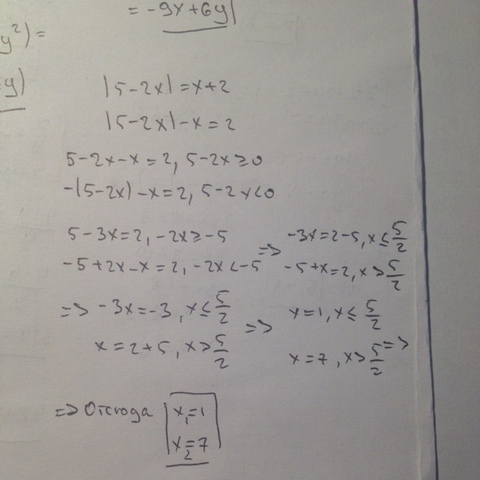 = -9x+6y|
y²)=
y)
|5-2x|=x+2
|5-2x|-x=2
5-2x-x=2, 5-2x≥0
-(5-2x)-x=2, 5-2x<0
5-3x=2, -2x≥-5 => -3x=2-5, x≤5/2
-5+2x-x=2, -2x<-5 -5+x=2, x>5/2
=> -3x=-3, x≤5/2 => x=1, x≤5/2
x=2+5, x>5/2 x=7, x>5/2 =>
=> Отсюда x₁=1
x₂=7